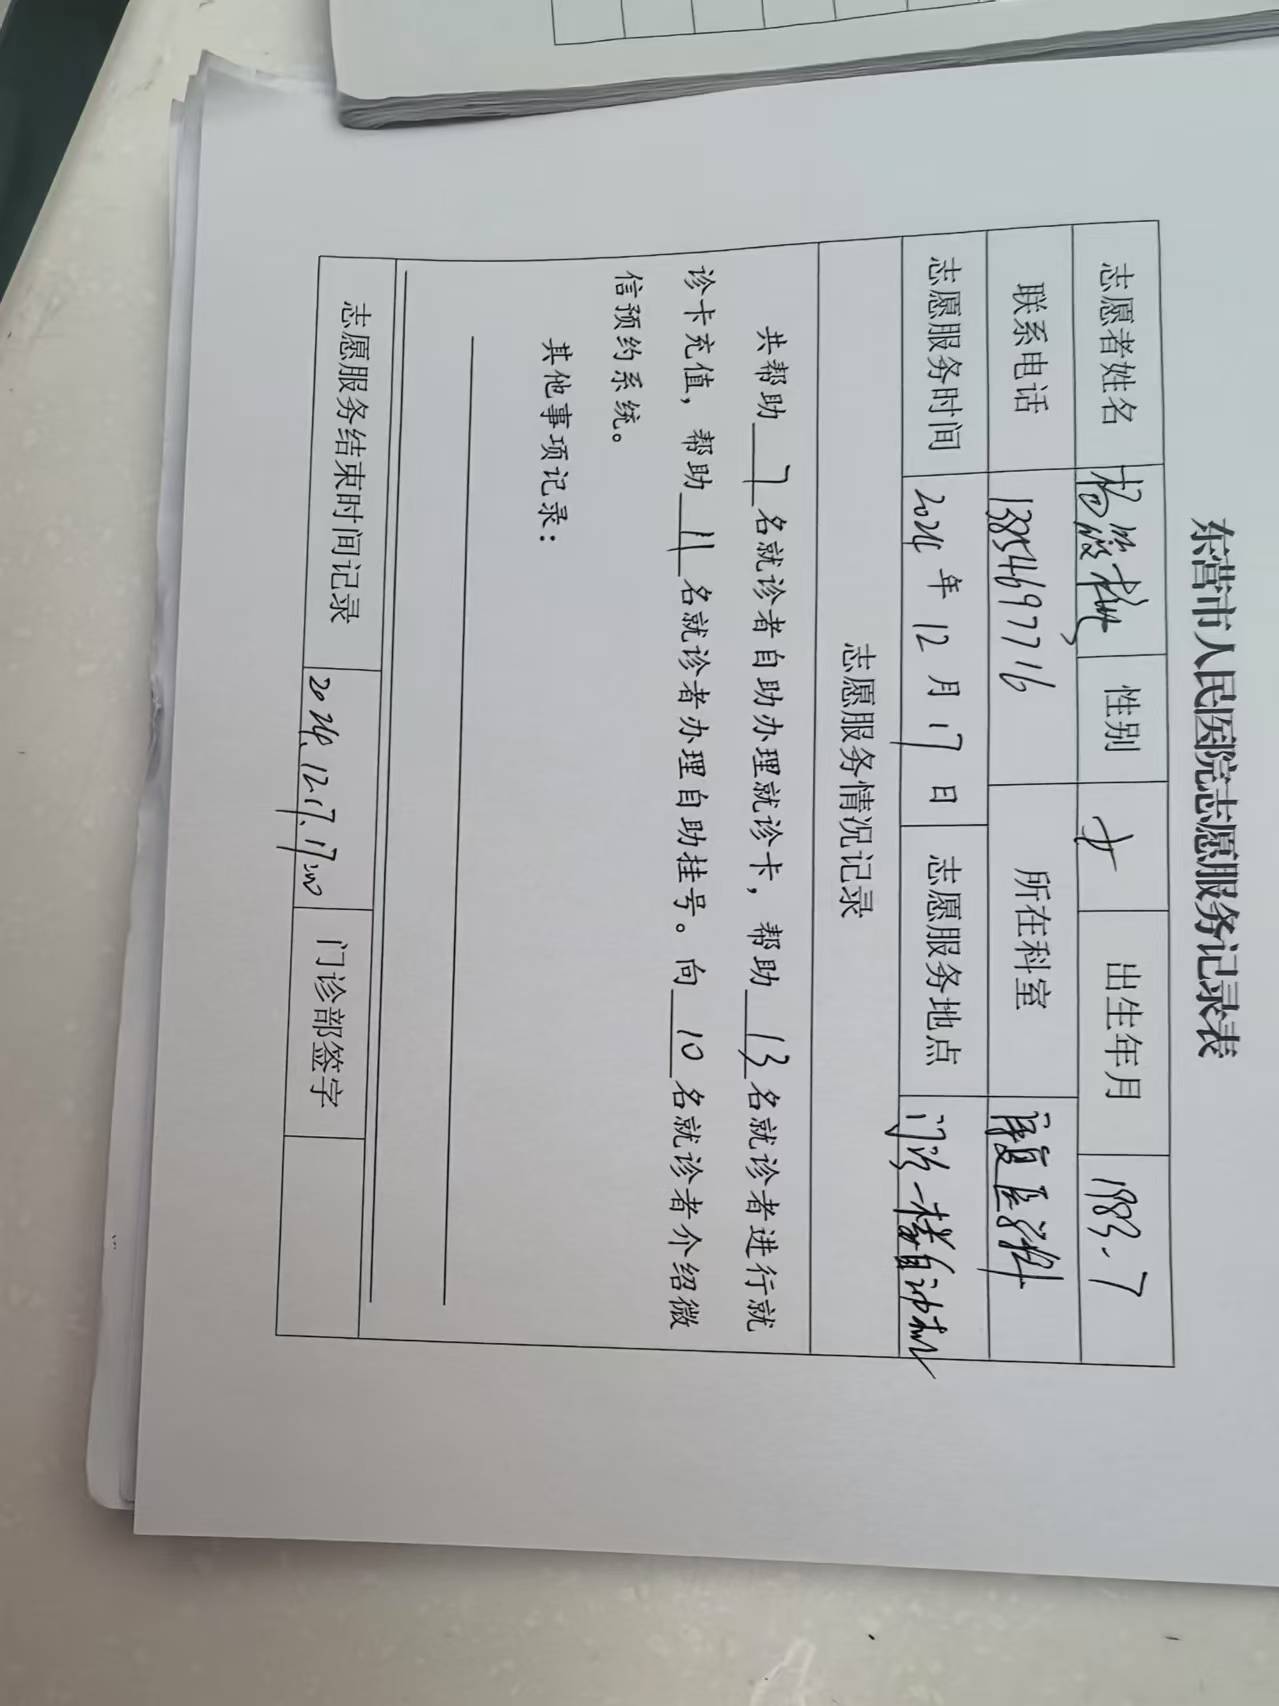 东营市人民医院志愿服务记录表
志愿者姓名 性别 女 出生年月 1983.7
联系电话 13854697716 所在科室 康复医学科
志愿服务时间 2024年12月17日 志愿服务地点 门诊一楼自助机
志愿服务情况记录
共帮助 7 名就诊者自助办理就诊卡，帮助 13 名就诊者进行就
诊卡充值，帮助 11 名就诊者办理自助挂号。向 10 名就诊者介绍微
信预约系统。
其他事项记录：
志愿服务结束时间记录 2024.12.17.17:00 门诊部签字